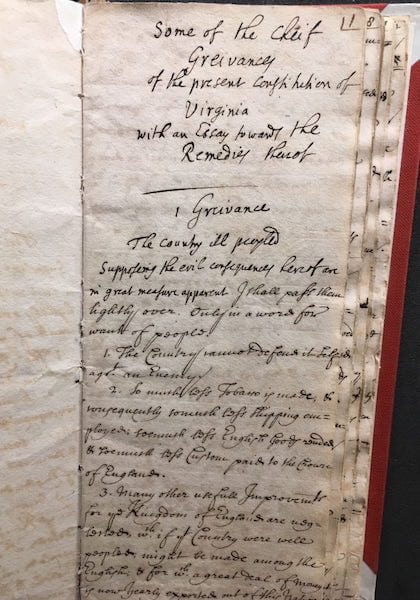 11
Some of the Cheif
Greivances
of the present Constitution of
Virginia
with an Essay towards the
Remedies therof
1 Greivance
The Country ill peopled
Supposing the evil consequences hereof are
in great measure apparent I shall pass them
lightly over. Only in a word for
want of people.
1. The Country cannot defend it self
agt. an Enemy
2. So much less Tobacco is made, &
consequently so much less shipping em-
ployed; soe much less English Goods
& soe much less Custom paid to the Crown
of England.
3. Many other usefull Improvemts
for ye Kingdom of England are neg-
lected, wch. if ye Country were well
peopled, might be made among the
English, & for wch. a great deal of
is now yearly exported out of